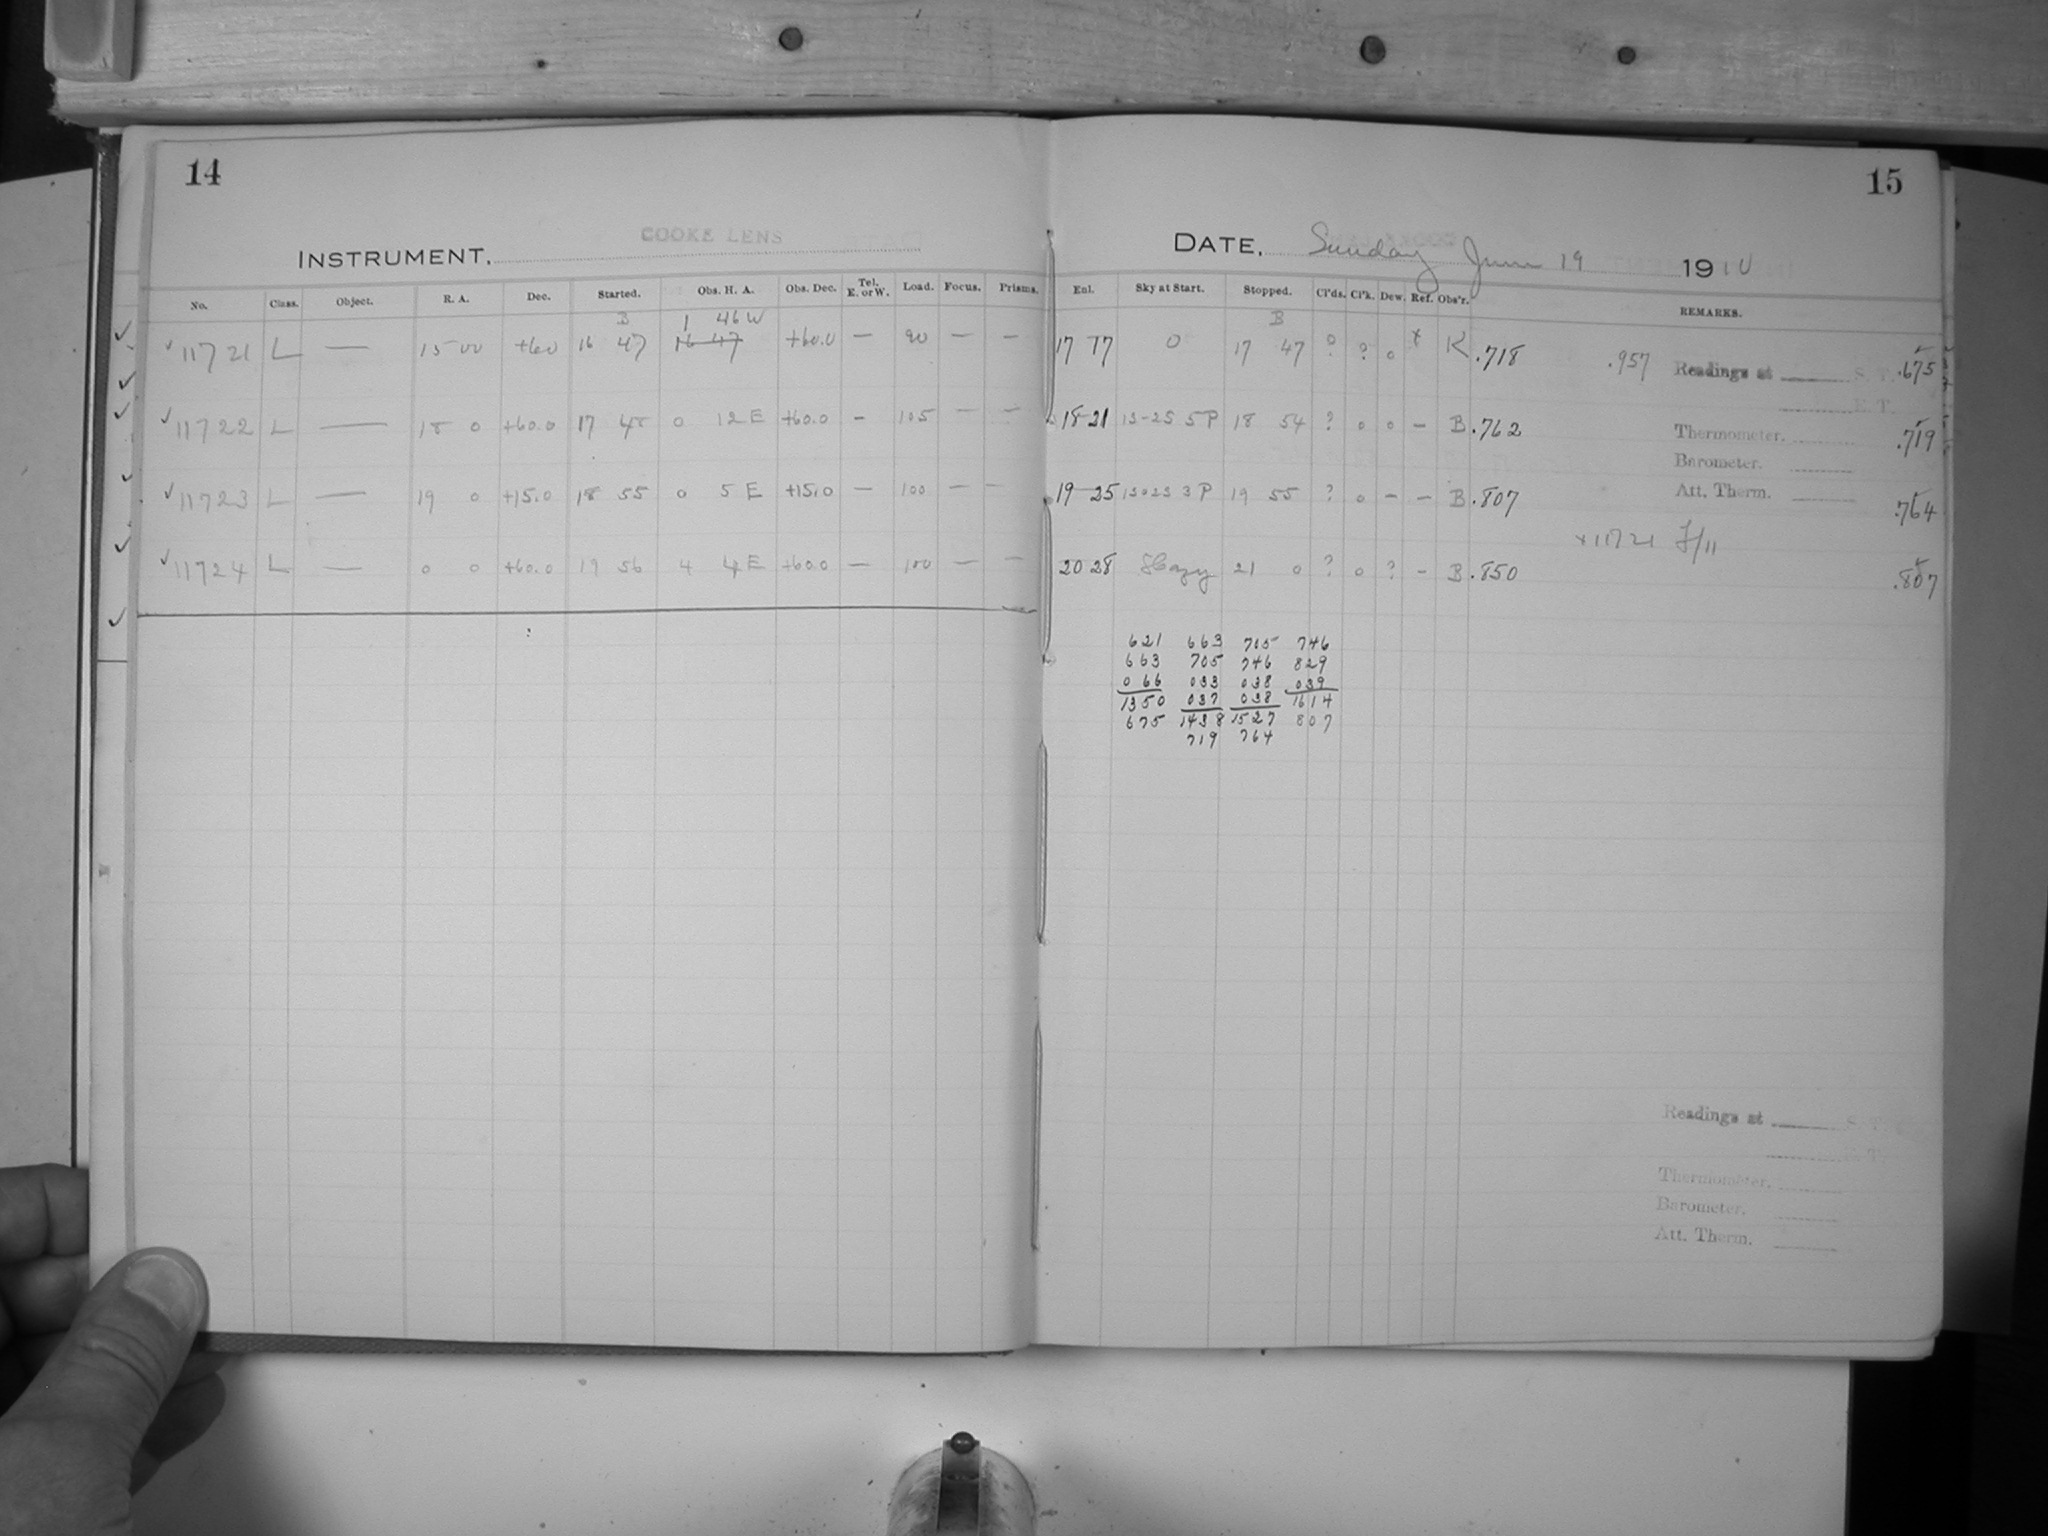 14
COOKE LENS
INSTRUMENT.
No. Class. Object. R. A. Dec. Started. Obs. H. A. Obs. Dec. Tel. E. or W. Load. Focus. Prisms.
B 1 46 W
11721 L — 15 00 +60 16 47 16 47 +60.0 — 90 — —
11722 L — 18 0 +60.0 17 48 0 12 E +60.0 - 105 — —
11723 L — 19 0 +15.0 18 55 0 5 E +15.0 — 100 — —
11724 L — 0 0 +60.0 19 56 4 4 E +60.0 — 100 — —
15
DATE, Sunday June 19 1910
Exl. Sky at Start. Stopped. Cl'ds. Cl'k. Dew. Ref. Obs'r. REMARKS.
B
17 17 0 17 47 ? ? 0 + K .718 .957 Readings at S. T. .675
E. T.
18-21 13-25 5P 18 54 ? 0 0 - B .762 Thermometer. .719
Barometer.
19-25 13025 3P 19 55 ? 0 - - B .807 Att. Therm. .764
+11721 f/11
20 28 Hazy 21 0 ? 0 ? - B .850 .807
621 663 705 746
663 705 746 829
066 033 038 039
1350 037 038 1614
675 1438 1527 807
719 764
Readings at S. T.
E. T.
Thermometer.
Barometer.
Att. Therm.